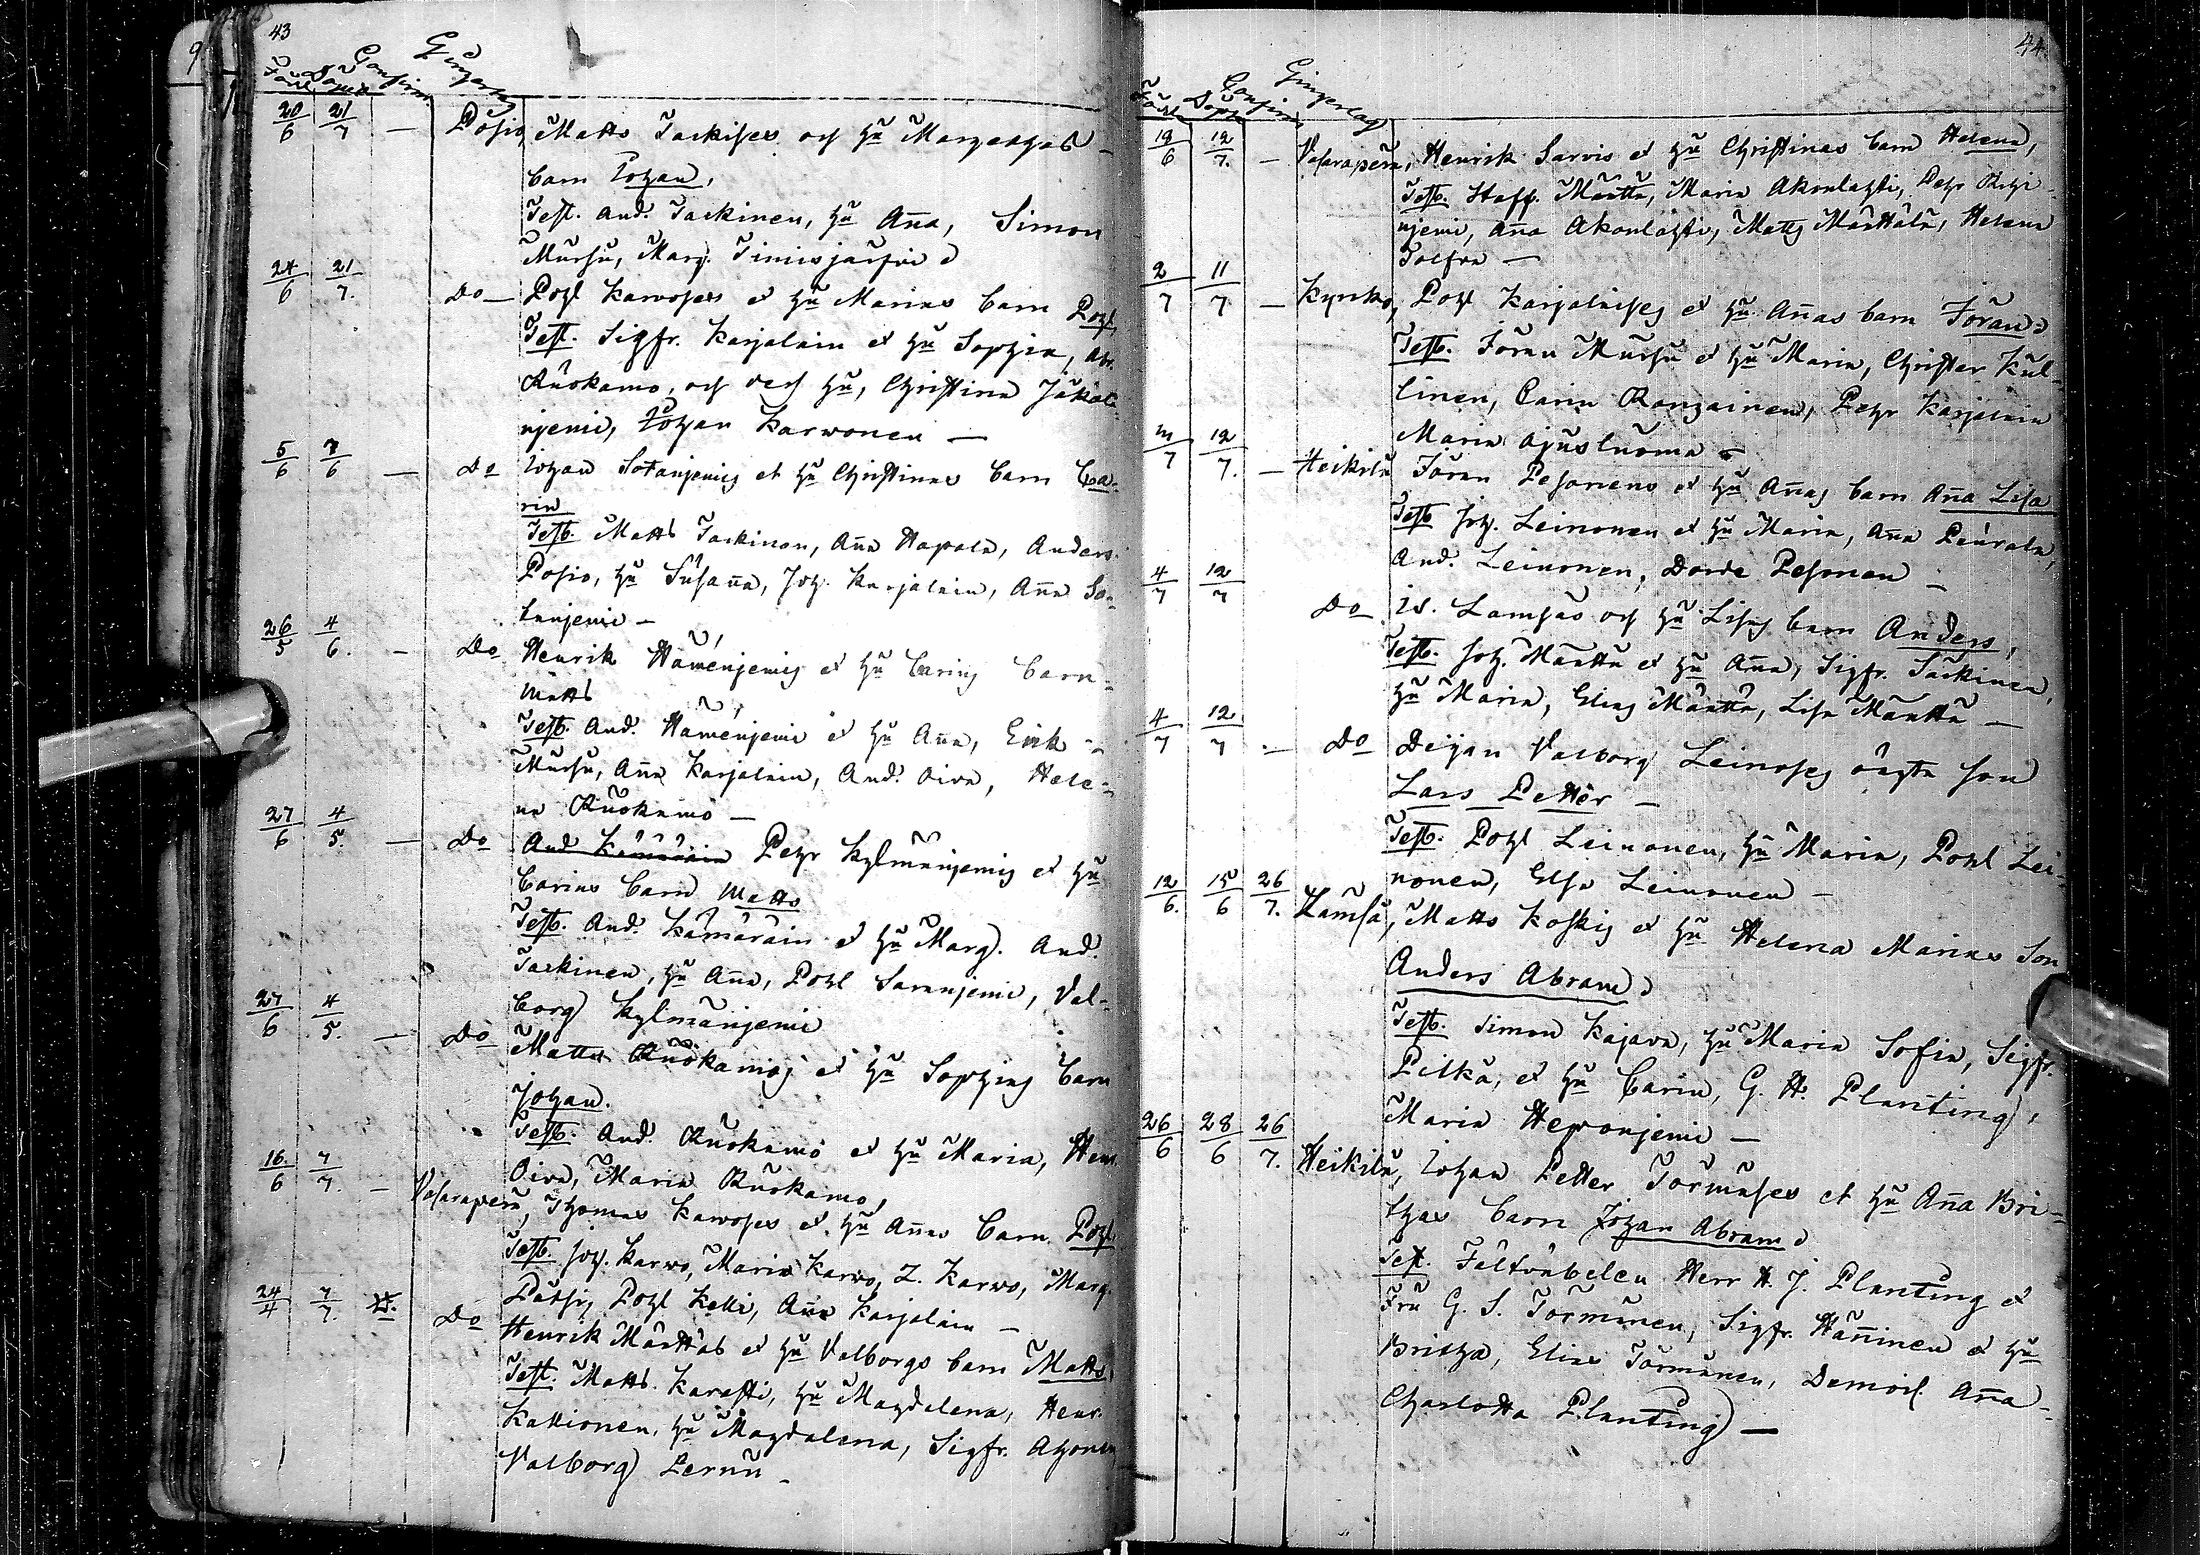 43
Född Döpt Confirm. Gingerlag
20/6 21/7 — Posio, Matts Jaskises och hu Margaretas
barn Johan,
Test. And. Jaskinen, hu Aña, Simon
Mursu, Marg. Timisjärfvi
24/6 21/7. Do — Pohl Karvoses et hu Marias barn Pohl,
Test. Sigfr. Karjalain et hu Sophia, Abr.
Ruokamo, och des hu, Christina
niemi, Johan Karvonen —
5/6 7/6 — Do Johan Sotaniemis et hu Christinas barn Ca-
rin
Testb. Matts Jaskinen, Aña Hapala, Anders
Posio, hu Susaña, Joh. Karjalain, Aña So-
taniemi —
26/5 4/6. — Do Henrik Hämeniemis et hu Carins barn
Matts
Testb. And. Hämeniemi et hu Aña, Erik
Mursu, Aña Karjalain, And. Oiva, Hele-
na Ruokamo —
27/6 4/5. — Do And Kämäräin Pehr Kylmäniemis et hu
Carins barn Matts
Testb. And. Kämäräin et hu Marg. And.
Jaskinen, hu Aña, Pohl Saraniemi, Val-
borg Kylmäniemi
27/6 4/5. — Do Matts Ruokamos et hu Sophias barn
Johan.
Testb. And. Ruokamo et hu Maria, Henr.
Oiva, Maria Ruokamo,
16/6 7/7. — Vasaraperä, Thomas Karvoses et hu Añas barn Pohl
Testb. Joh. Karvo, Maria Karvo, Z. Karvo, Marg.
Pätsi, Pohl Kelli, Aña Karjalain —
24/4 7/7. Do Henrik Määttäs et hu Valborgs barn Matts,
Test. Matts Karasti, hu Magdalena, Henr.
Kallionen, hu Magdalena, Sigfr. Ahonen
Valborg Pernu —
44.
Född Döpt Confirm Gingerlag
19/6 12/7. — Vasaraperä, Henrik Sarvis et hu Christinas barn Helena,
Testb. Staff. Määttä, Maria Akonlahti, Pehr
niemi, Aña Akonlahti, Matts Määttälä, Helena
2/7 11/7 — Kynsko, Pohl Karjalaises et hu Añas barn Jöran
Testb. Jöran Mursu et hu Maria, Christer Kul-
linen, Carin Ronkainen, Pehr Karjalain
Maria Ojusluoma
12/7. — Heikilä Jöran Pesonens et hu Añas barn Aña Lisa
Testb Joh. Leinonen et hu Maria, Aña Peurala,
And. Leinonen, Dorde Pesonen —
4/7 12/7 Do Is. Lamsas och hu Lisas barn Anders,
Testb. Joh. Määttä et hu Aña, Sigfr. Säskinen,
hu Maria, Elias Määttä, Lisa Määttä —
4/7 12/7 — Do Deijan Valborg Leinoses oägta son
Lars Petter —
Testb. Pohl Leinonen, hu Maria, Pohl Lei-
nonen, Elsa Leinonen —
12/6. 15/6 26/7. Lämsä, Matts Koskis et hu Helena Marias Son
Anders Abram
Testb. Simon Kajava, hu Maria Sofia, Sigfr.
Pitkä, et hu Carin, G. H. Planting,
Maria Heponiemi —
26/6 28/6 26/7. Heikilä, Johan Petter Törmäses et hu Aña Bri-
thas barn Johan Abram
Test. Fältväbelen Herr H. J. Planting et
Fru G. S. Törmänen, Sigfr. Hänninen et hu
Britha, Elias Törmänen, Demois. Aña
Charlotta Planting —